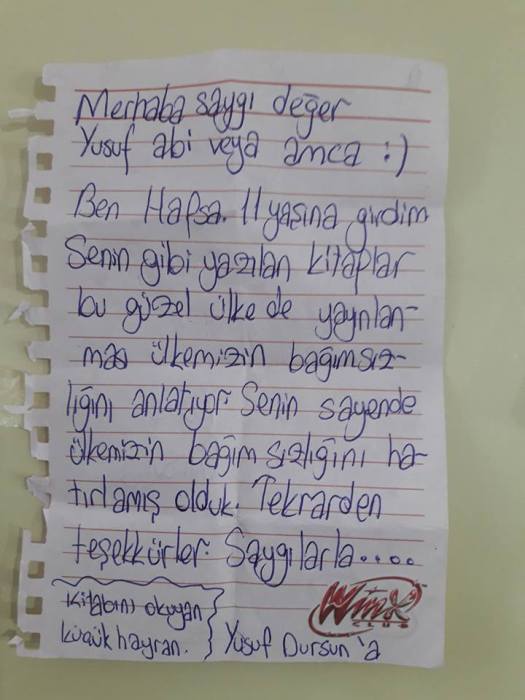 Merhaba saygı değer
Yusuf abi veya amca :)
Ben Hafsa. 11 yaşına girdim
Senin gibi yazılan kitaplar
bu güzel ülke de yaynlan-
ması ülkemizin bağımsız-
lığını anlatıyor. Senin sayende
ülkemizin bağımsızlığını ha-
tırlamış olduk. Tekrarden
teşekkürler. Saygılarla.....
Kitabını okuyan
küçük hayran. } Yusuf Dursun'a
Winx
CLUB